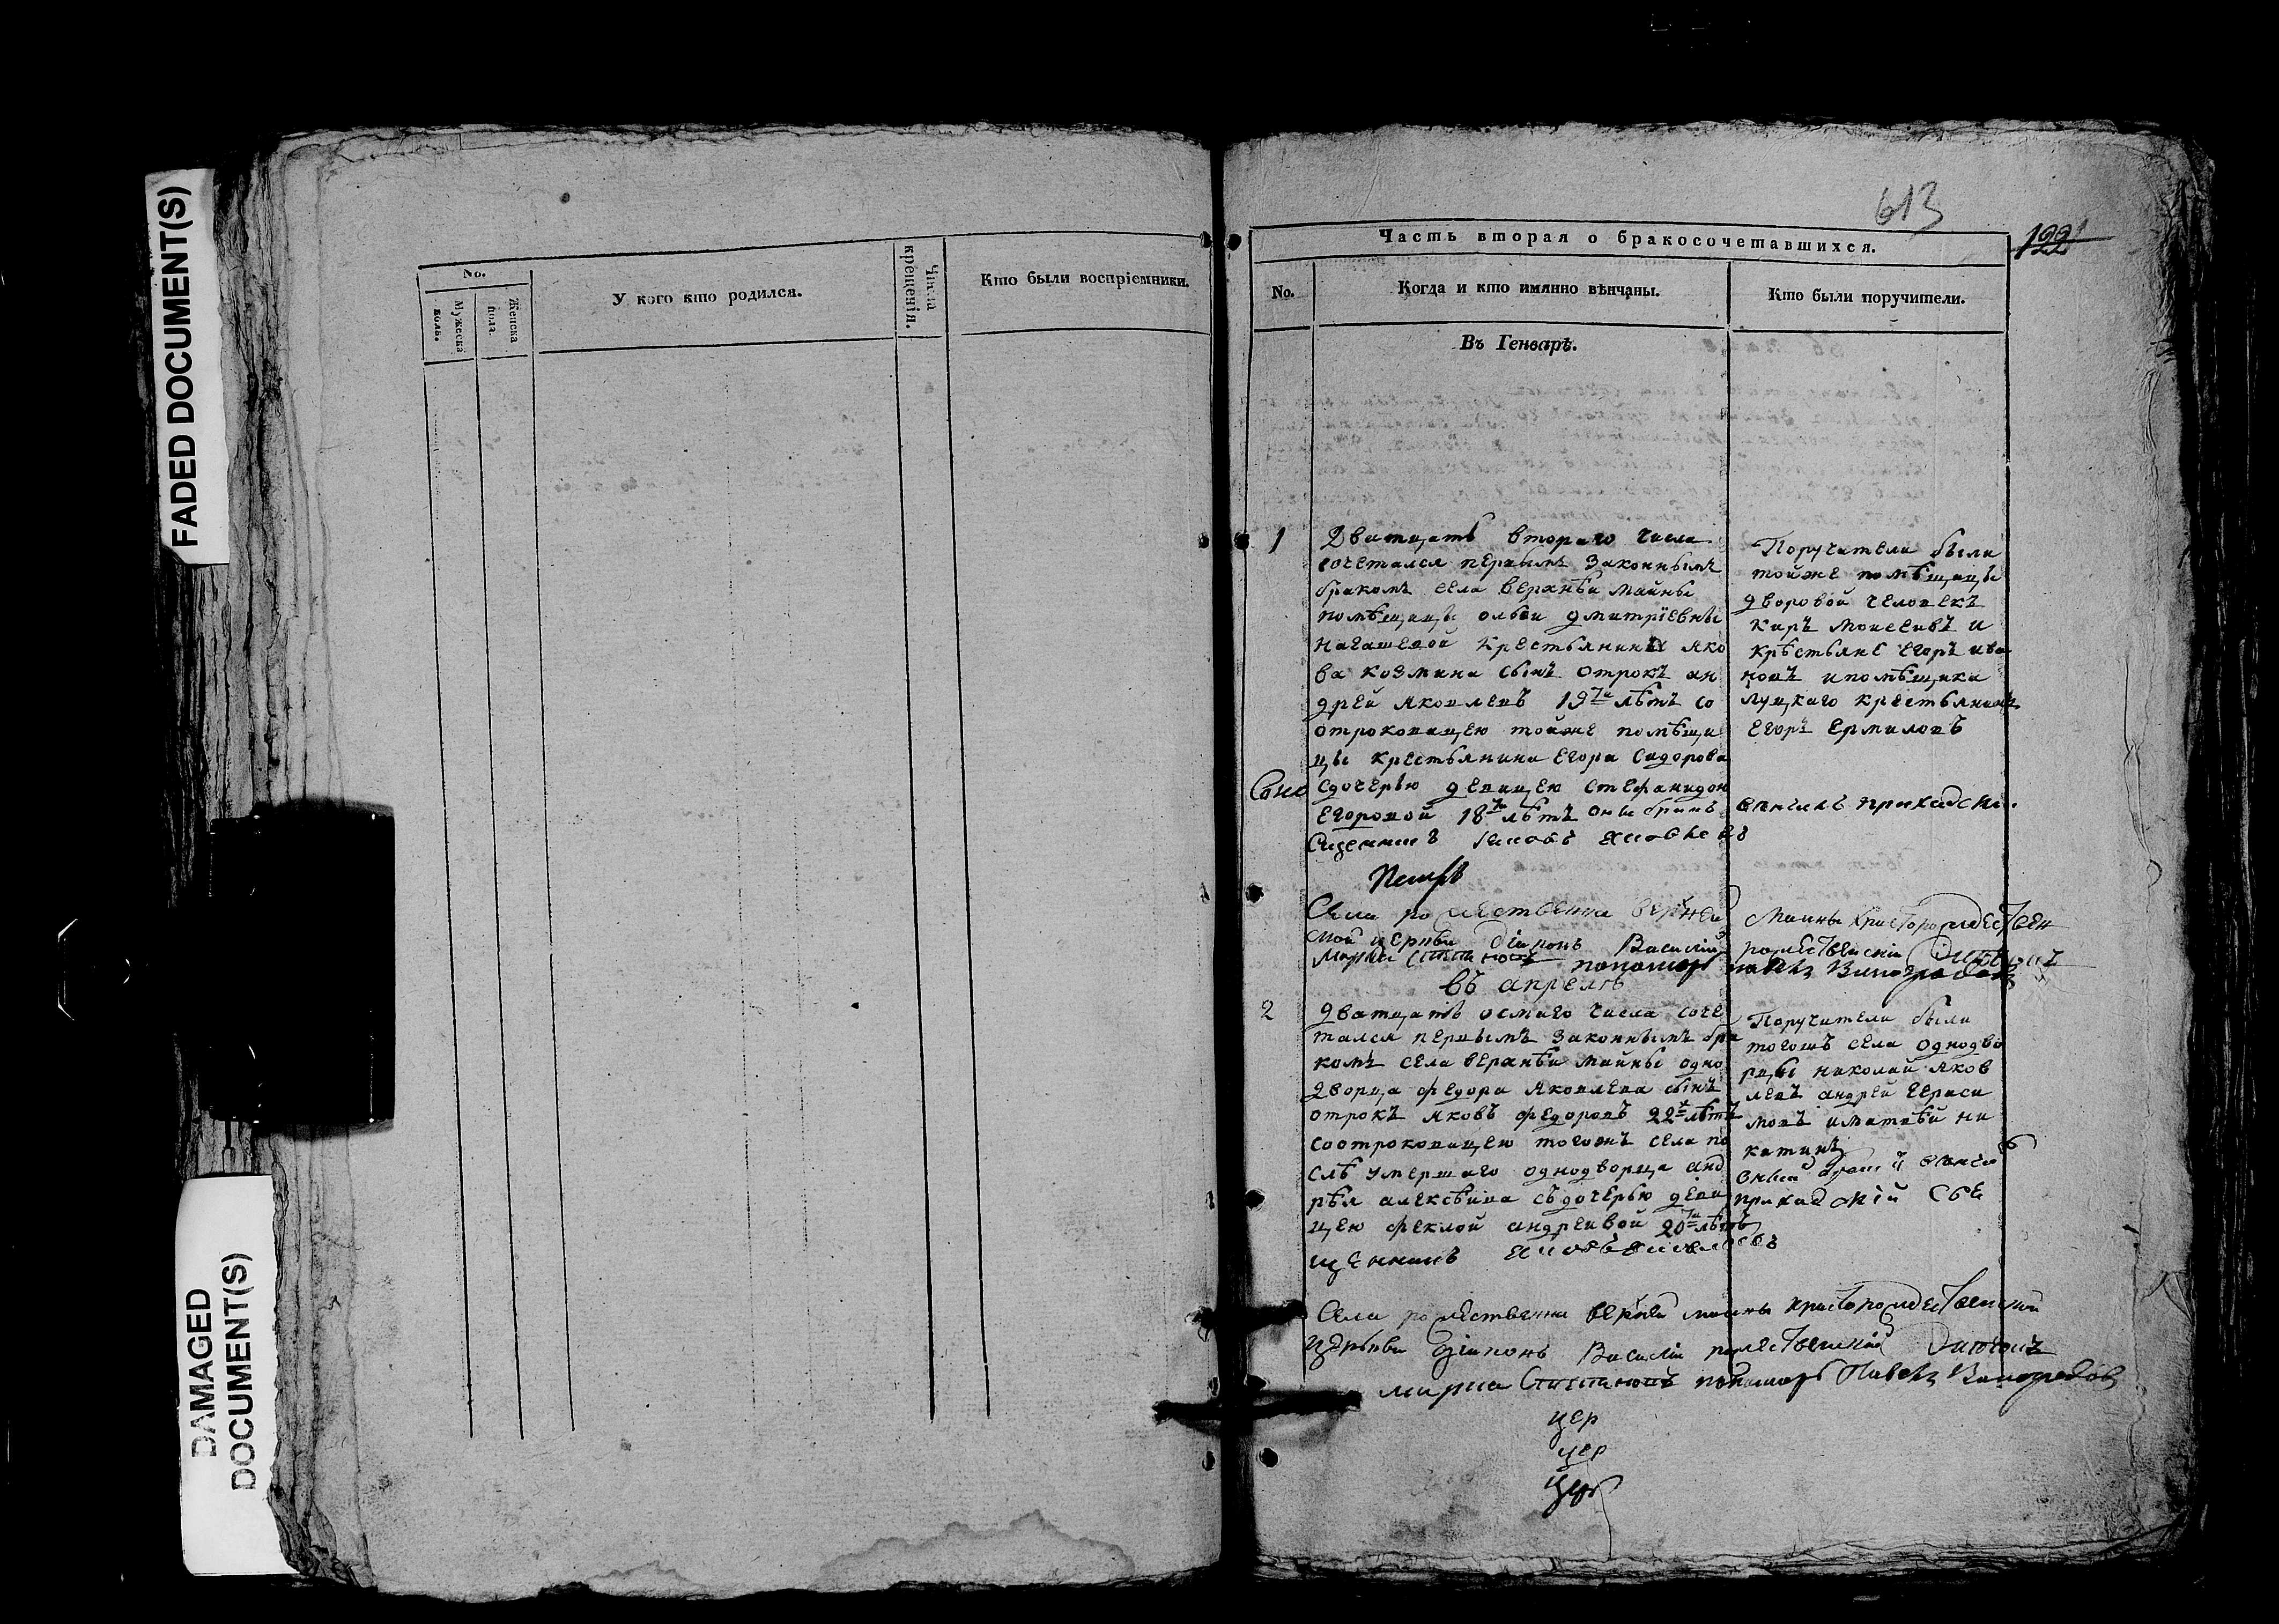 FADED DOCUMENT(S)
DAMAGED
DOCUMENT(S)
No.
Мужеска
полъ.
Женска
пола.
У кого кто родился.
Числа
крещенія.
Кто были воспріемники.
613
122
Часть вторая о бракосочетавшихся.
No.
Когда и кто имянно вѣнчаны.
Кто были поручители.
Въ Генварѣ.
1
Дватцать втораго числа
сочетался первымъ законнымъ
бракомъ села верхнѣи майны
помѣщицы олги дмитріевны
крестьянина яко
ва козмина сынъ отрокъ ан
дрей яковлевъ 19ти лѣтъ со
отроковицею тойже помѣщи
цы крестьянина егора сидорова
сдочерью девицею стефанидои
егоровой 18ти лѣтъ оны бракъ
Поручители были
тойже помѣщицы
дворовой человекъ
киръ моисеивъ и
крѣстьяне егоръ ива
новъ ипомѣщика
луцкаго крестьянинъ
егоръ ермиловъ
венчалъ приходски
Села верхнеи
маины
церкви діаконъ Василіи
пономарь Виноградовъ
въ апреле
2
дватцать осмаго числа соче
тался первымъ законнымъ бра
комъ села верхнѣи майны одно
дворца федора яковлева сынъ
отрокъ яковъ федоровъ 22х лѣтъ
соотроковицею тогожъ села по
слѣ умершаго однодворца анд
рѣя алексѣива съдочерью деви
цею феклой андреивой 20ти лѣтъ
щенникъ
Поручители были
тогожъ села однодво
рцы николай яков
левъ андрей гераси
мовъ иматвѣй ни
китинъ
оный бракъ венчалъ
приходскій свя
Села верхней маины
церкви діаконъ Василіи
пономарь Павелъ Виноградовъ
цер
цер
цер